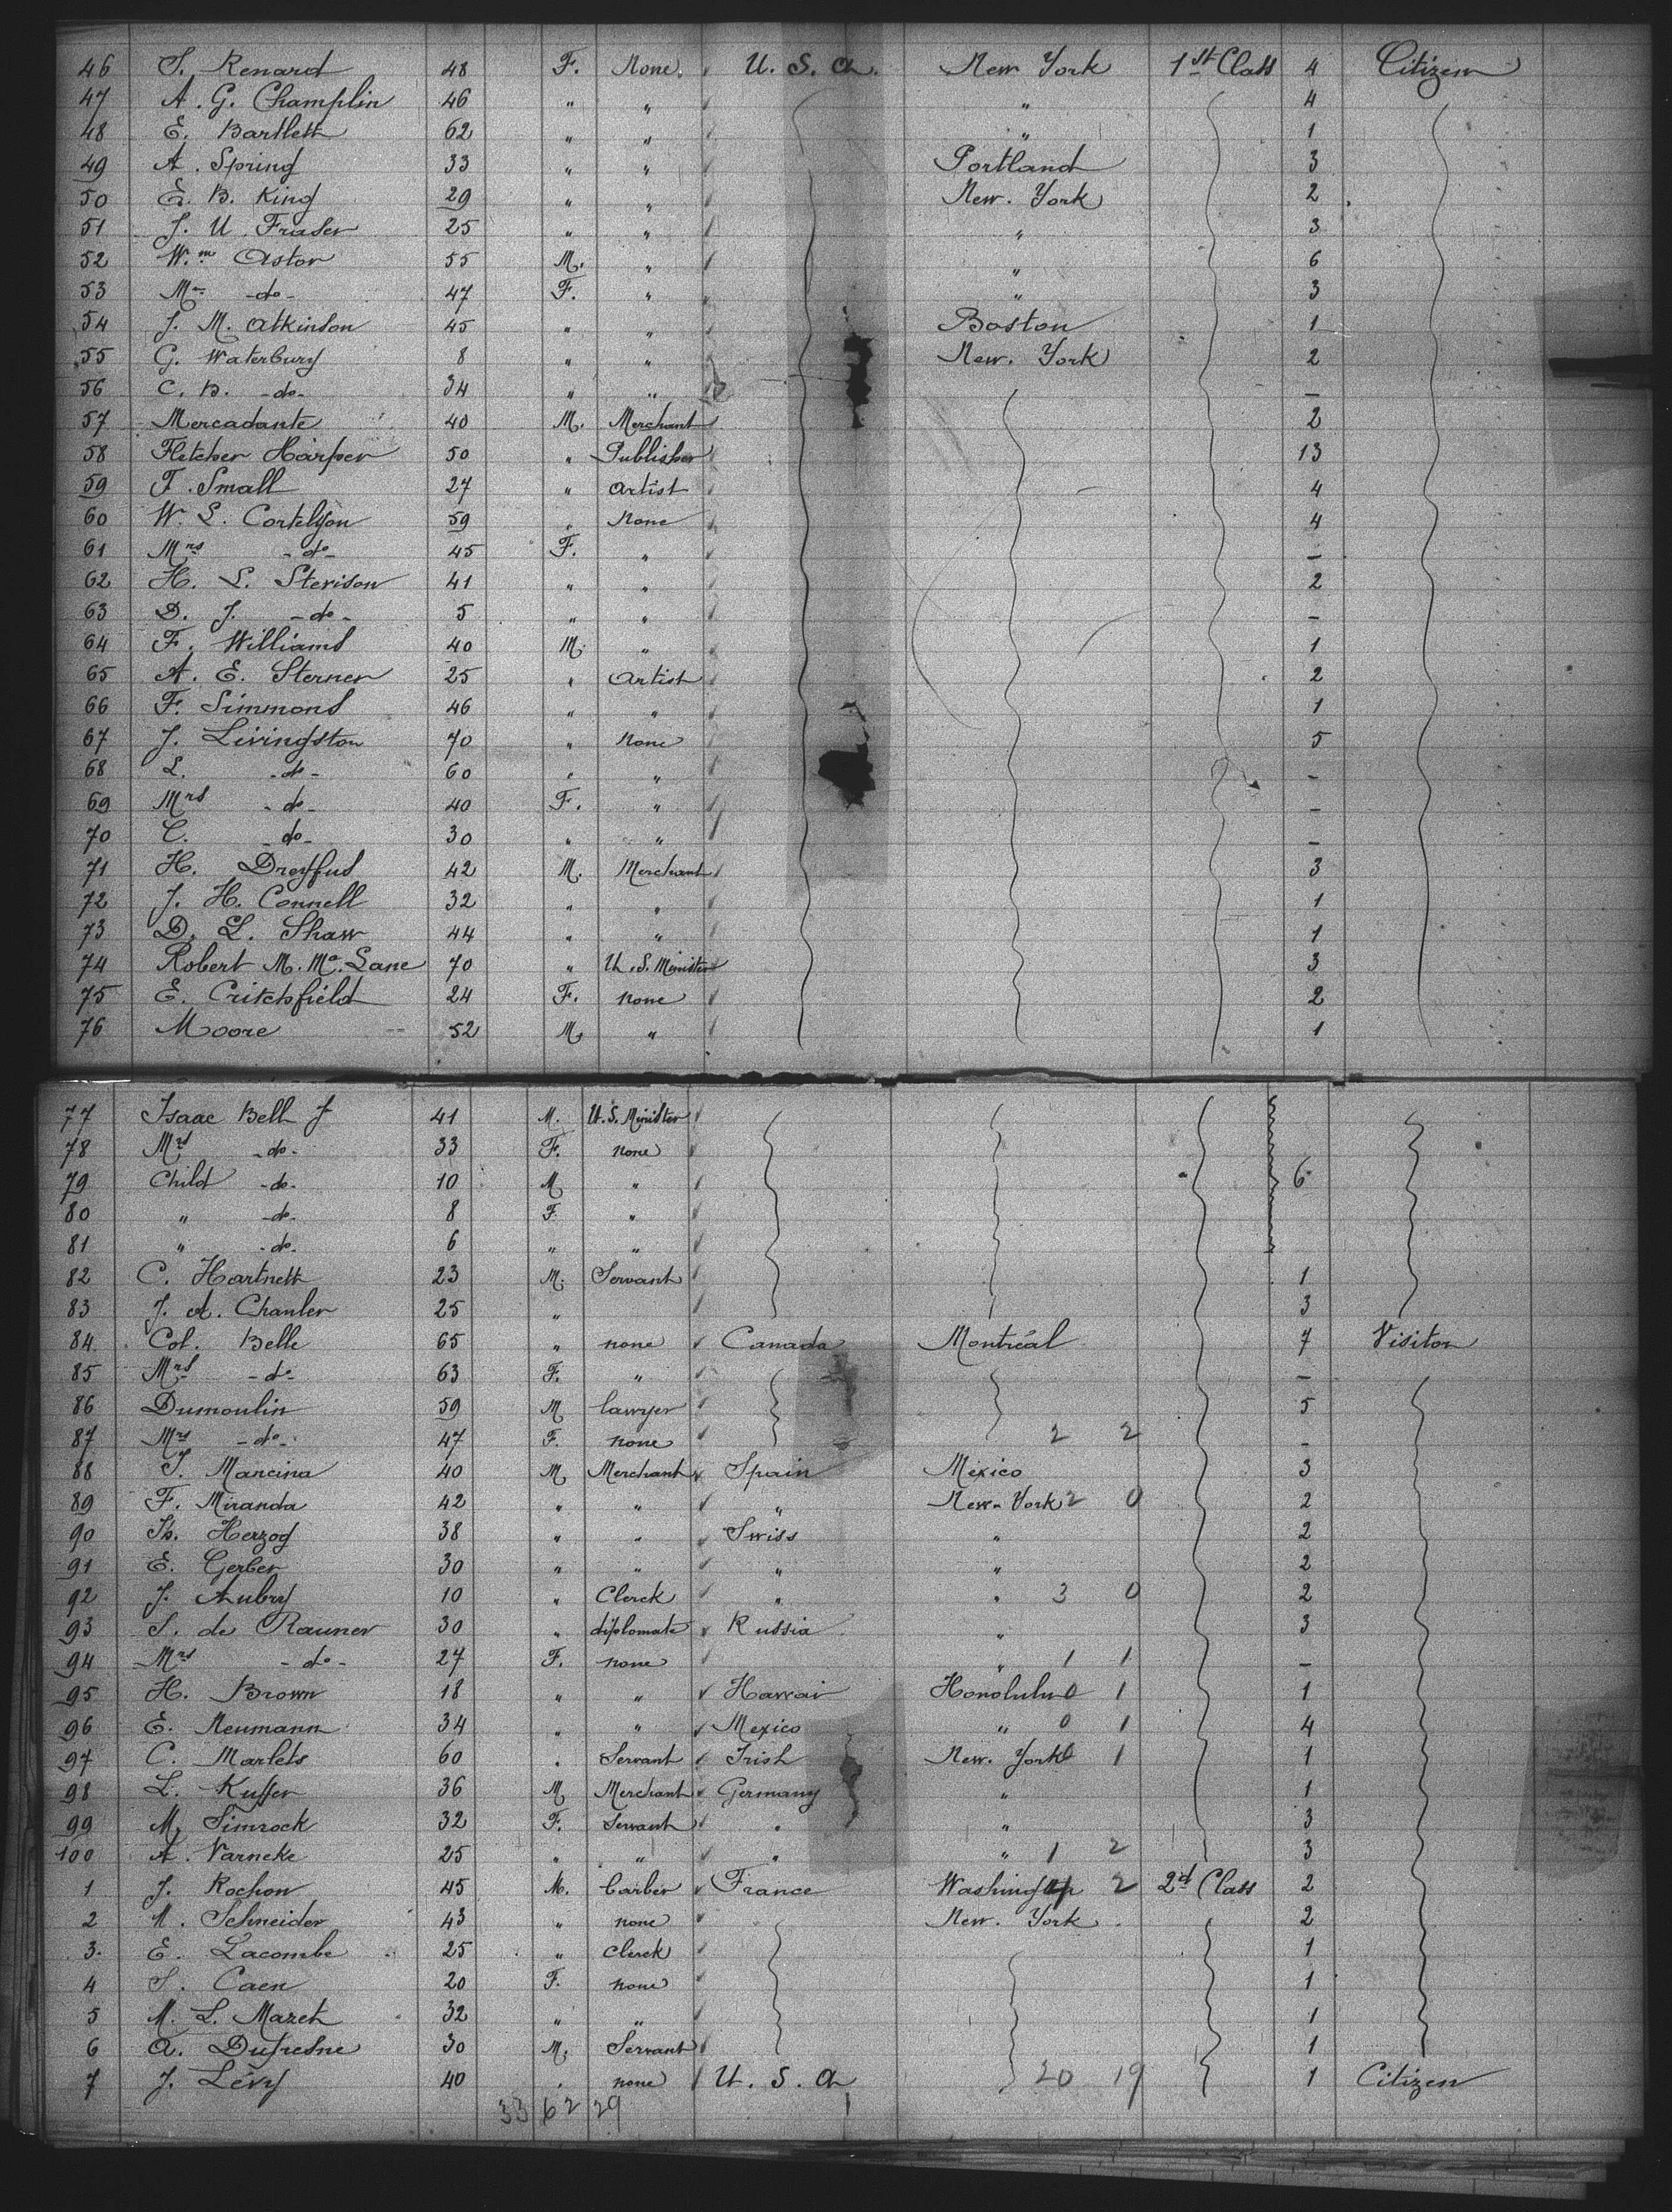 46 S. Renard 48 F. None. U. S. A. New York 1st Class 4 Citizen
47 A. G. Champlin 46 " " " 4
48 E. Bartlett 62 " " " 1
49 A. Spring 33 " " Portland 3
50 E. B. King 29 " " New. York 2
51 J. U. Fraser 25 " " " 3
52 Wm Astor 55 M. " " 6
53 Mrs -do- 47 F. " " 3
54 J. M. Atkinson 45 " " Boston 1
55 G. Waterbury 8 " " New. York 2
56 C. B. -do- 34 " " -
57 Mercadante 40 M. Merchant 2
58 Fletcher Harper 50 " Publisher 13
59 F. Small 27 " Artist 4
60 W. L. Cortelyou 59 " None 4
61 Mrs -do- 45 F. " -
62 H. L. Sterison 41 " " 2
63 D. J. -do- 5 " " -
64 F. Williams 40 M. " 1
65 A. E. Sterner 25 " Artist 2
66 F. Simmons 46 " " 1
67 J. Livingston 70 " None 5
68 L. -do- 60 " " -
69 Mrs -do- 40 F. " -
70 C. -do- 30 " " -
71 H. Dreyfus 42 M. Merchant 3
72 J. H. Connell 32 " " 1
73 D. L. Shaw 44 " " 1
74 Robert M. Mc. Lane 70 " U. S. Minister 3
75 E. Critchfield 24 F. none 2
76 Moore 52 M. " 1
77 Isaac Bell J 41 M. U. S. Minister
78 Mrs -do- 33 F. none
79 Child -do- 10 M " 6
80 " -do- 8 F "
81 " -do- 6 " "
82 C. Hartnett 23 M. Servant 1
83 J. A. Chanler 25 " 3
84 Col. Belle 65 " none Canada Montréal 7 Visitor
85 Mrs -do- 63 F. " -
86 Dumoulin 59 M lawyer 5
87 Mrs -do- 47 F. none 2 2 -
88 J. Mancina 40 M Merchant Spain Mexico 3
89 F. Miranda 42 " " " New-York 2 0 2
90 Herzog 38 " " Swiss " 2
91 E. Gerber 30 " " " " 2
92 J. Aubry 10 " Clerck " " 3 0 2
93 S. de Rauner 30 " diplomate Russia " 3
94 Mrs -do- 27 F. none " 1 1 -
95 H. Brown 18 " " Hawai Honolulu 0 1 1
96 E. Neumann 34 " " Mexico " 0 1 4
97 C. Marlets 60 " Servant Irish New. York 0 1 1
98 L. Kuffer 36 M Merchant Germany " 1
99 M. Simrock 32 F. Servant " " 3
100 A. Varneke 25 " " " " 1 2 3
1 J. Rochon 45 M. barber France Washington 2 2d Class 2
2 M. Schneider 43 " none New. York 2
3 E. Lacombe 25 " clerck 1
4 S. Caen 20 F. none 1
5 M. L. Mazet 32 " " 1
6 A. Dufresne 30 M. Servant 1
7 J. Lévy 40 " none U. S. A 20 19 1 Citizen
33 62 29